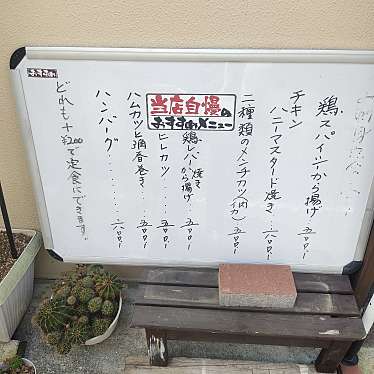 鶏スパイシーから揚げ 五〇〇-
チキン
ハニーマスタード焼き・一八〇〇-
二種類のメンチカツ(肉カ) 五〇〇-
当店自慢の
おすすめメニュー
鶏レバーから揚げ 焼き 五〇〇-
ヒレカツ・・・・五〇〇-
ハムカツと満春巻き・・五〇〇-
ハンバーグ・・・・・・・一八〇〇-
おすすめ!
どれも+¥200で定食にできます。